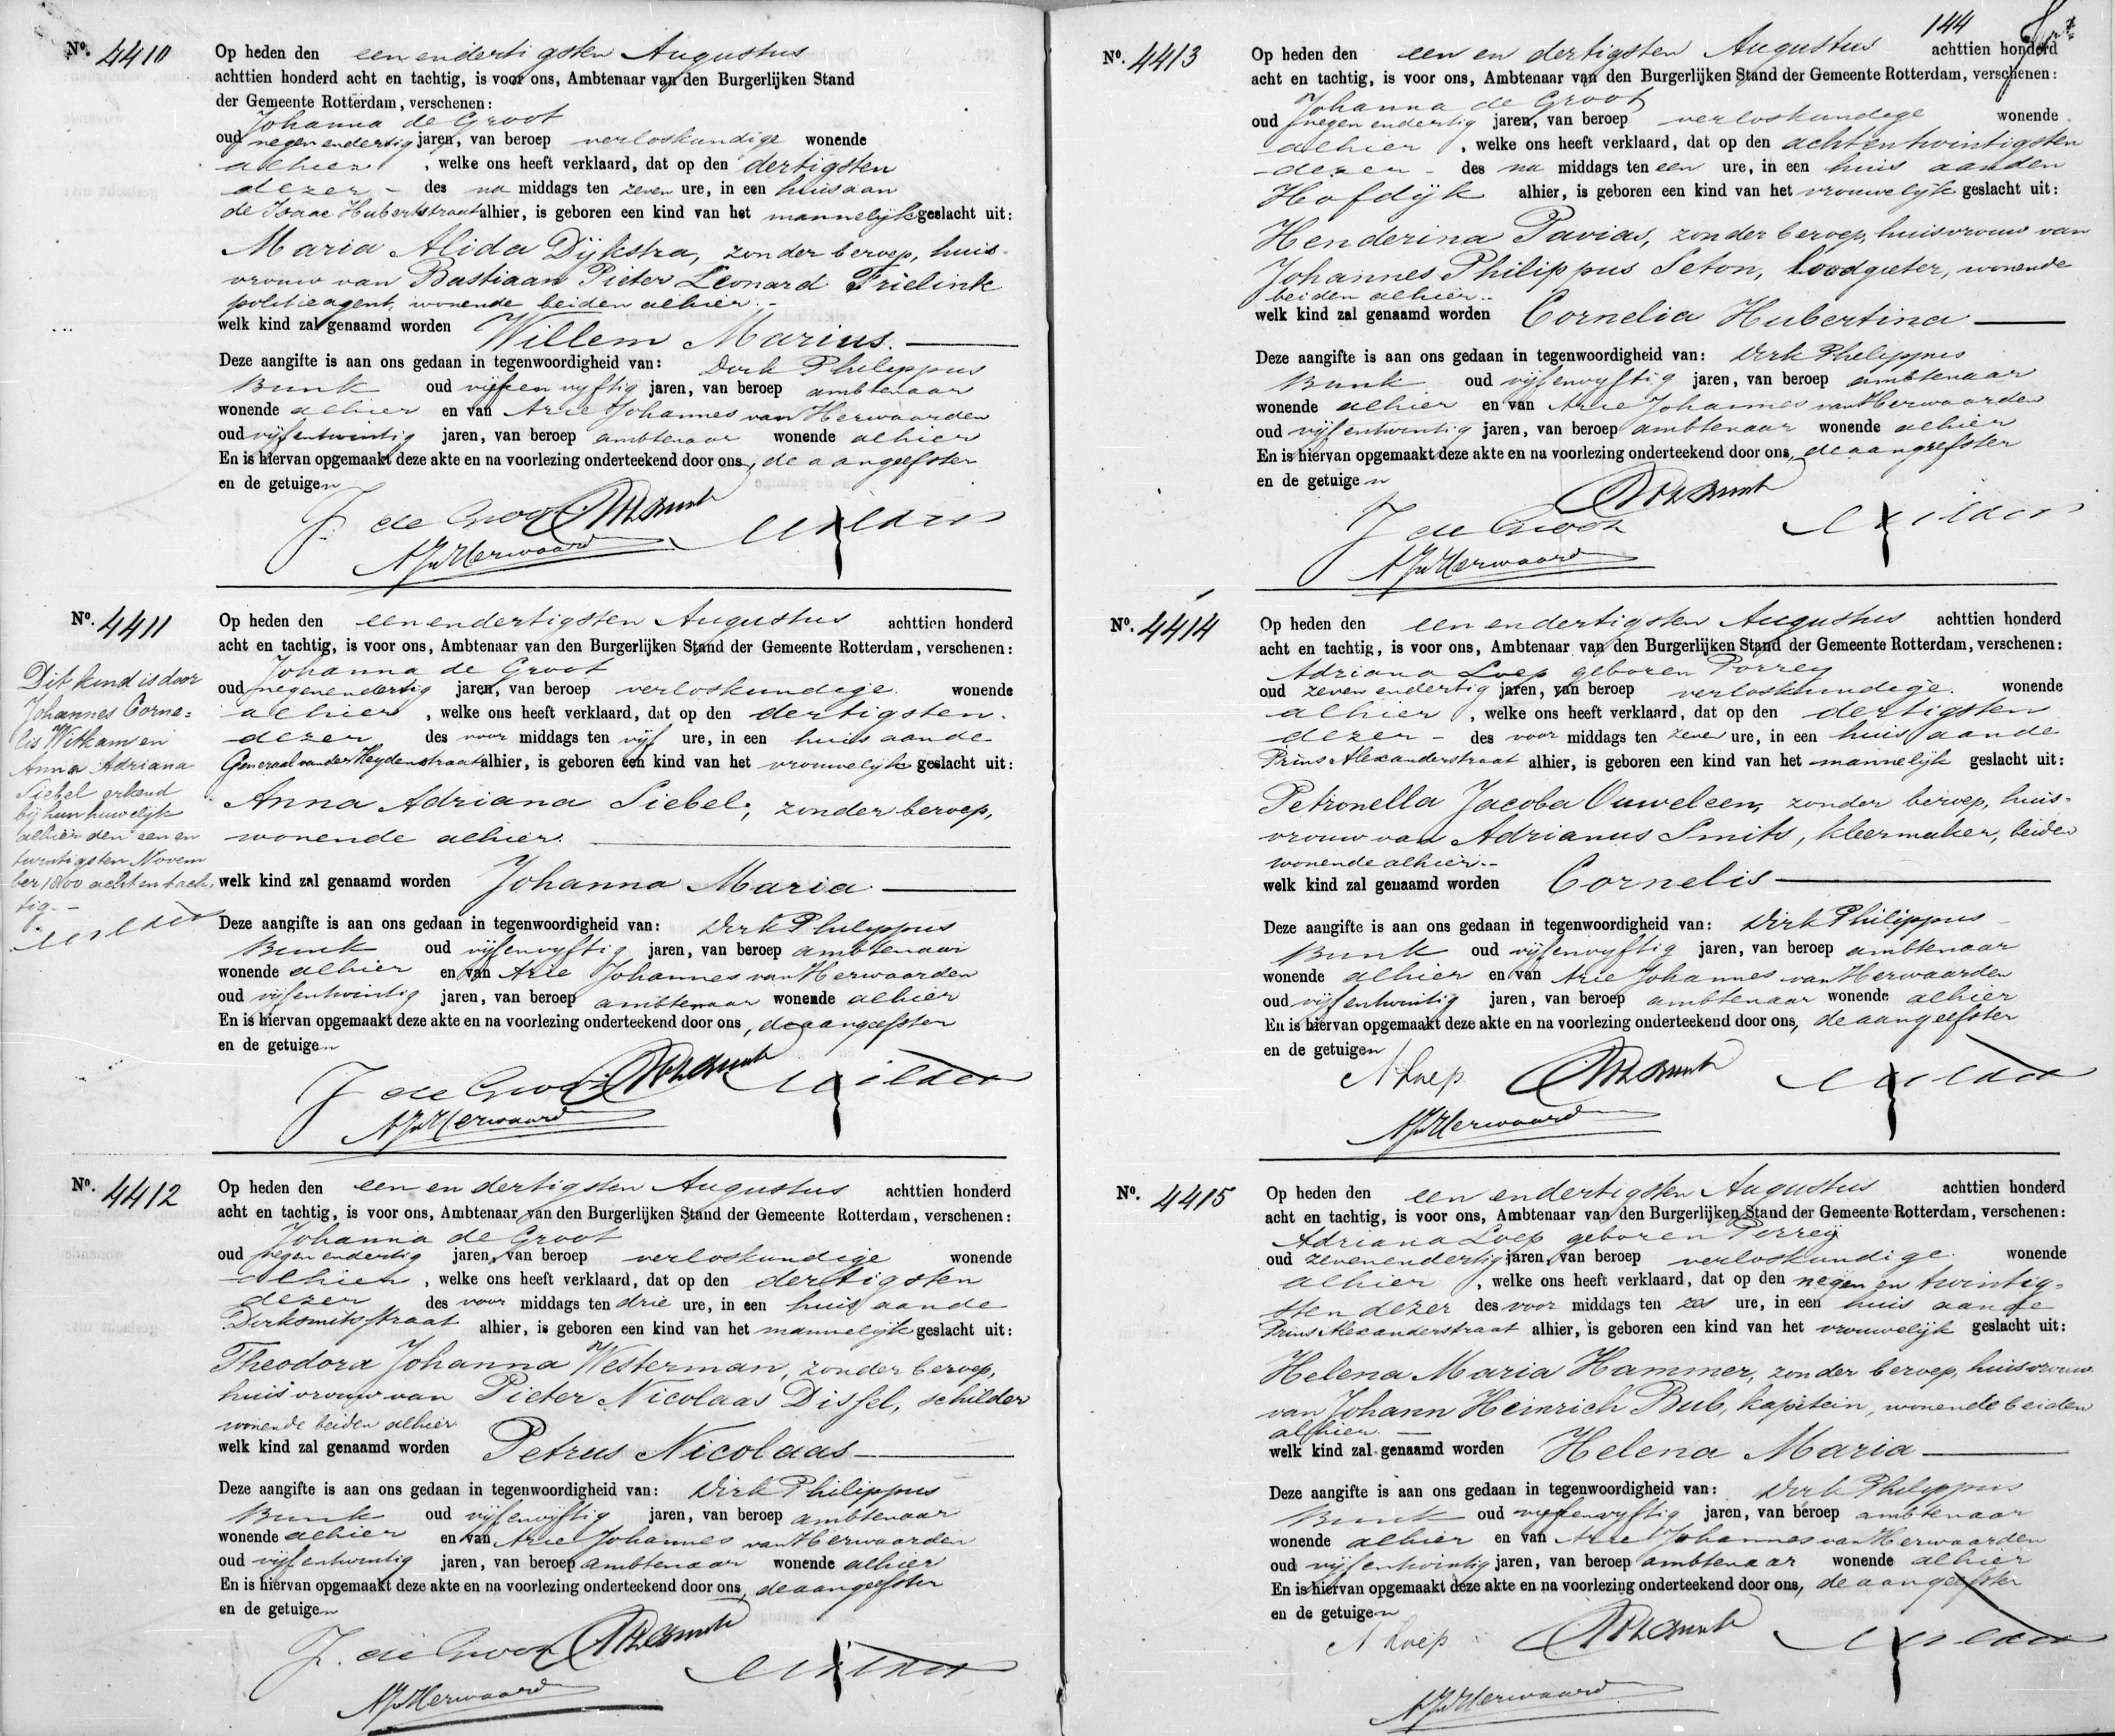 Nº. 4410
Op heden den eenendertigsten Augustus
achttien honderd acht en tachtig, is voor ons, Ambtenaar van den Burgerlijken Stand
der Gemeente Rotterdam, verschenen:
Johanna de Groot
oud negenendertig jaren, van beroep verloskundige wonende
alhier, welke ons heeft verklaard, dat op den dertigsten
dezer - des na middags ten zeven ure, in een huis aan
de Isaac Hubertstraat alhier, is geboren een kind van het mannelijk geslacht uit:
Maria Alida Dijkstra, zonder beroep, huis-
vrouw van Bastiaan Pieter Leonard Frielink
politieagent, wonende beiden alhier.-
welk kind zal genaamd worden Willem Marius.
Deze aangifte is aan ons gedaan in tegenwoordigheid van: Dirk Philippus
Bunk oud vijfenvijftig jaren, van beroep ambtenaar
wonende alhier en van Arie Johannes van Herwaarden
oud vijfentwintig jaren, van beroep ambtenaar wonende alhier
En is hiervan opgemaakt deze akte en na voorlezing onderteekend door ons, de aangeefster
en de getuigen
J. de Groot DPh Bunk
AJvHerwaarde
Nº. 4411
Op heden den eenendertigsten Augustus achttien honderd
acht en tachtig, is voor ons, Ambtenaar van den Burgerlijken Stand der Gemeente Rotterdam, verschenen:
Johanna de Groot
oud negenendertig jaren, van beroep verloskundige wonende
alhier, welke ons heeft verklaard, dat op den dertigsten
dezer des voor middags ten vijf ure, in een huis aan de
Generaal van der Heydenstraat alhier, is geboren een kind van het vrouwelijk geslacht uit:
Anna Adriana Siebel, zonder beroep,
wonende alhier.
welk kind zal genaamd worden Johanna Maria
Deze aangifte is aan ons gedaan in tegenwoordigheid van: Dirk Philippus
Bunk oud vijfenvijftig jaren, van beroep ambtenaar
wonende alhier en van Arie Johannes van Herwaarden
oud vijfentwintig jaren, van beroep ambtenaar wonende alhier
En is hiervan opgemaakt deze akte en na voorlezing onderteekend door ons, de aangeefster
en de getuigen
J de Groot DPh Bunk
AJvHerwaarde
Dit kind is door
Johannes Corne=
lis Witkam en
Anna Adriana
Siebel erkend
bij hun huwelijk
alhier den een en
twintigsten Novem
ber 1800 acht en tach-
tig.-
Nº. 4412
Op heden den een en dertigsten Augustus achttien honderd
acht en tachtig, is voor ons, Ambtenaar van den Burgerlijken Stand der Gemeente Rotterdam, verschenen:
Johanna de Groot
oud negenendertig jaren, van beroep verloskundige wonende
alhier, welke ons heeft verklaard, dat op den dertigsten
dezer des voor middags ten drie ure, in een huis aan de
Dirksmitsstraat alhier, is geboren een kind van het mannelijk geslacht uit:
Theodora Johanna Westerman, zonder beroep,
huisvrouw van Pieter Nicolaas Dissel, schilder
wonende beiden alhier
welk kind zal genaamd worden Petrus Nicolaas
Deze aangifte is aan ons gedaan in tegenwoordigheid van: Dirk Philippus
Bunk oud vijfenvijftig jaren, van beroep ambtenaar
wonende alhier en van Arie Johannes van Herwaarden
oud vijfentwintig jaren, van beroep ambtenaar wonende alhier
En is hiervan opgemaakt deze akte en na voorlezing onderteekend door ons, de aangeefster
en de getuigen
J. de Groot DPh Bunk
AJvHerwaarde
144
Nº. 4413
Op heden den een en dertigsten Augustus achttien honderd
acht en tachtig, is voor ons, Ambtenaar van den Burgerlijken Stand der Gemeente Rotterdam, verschenen:
Johanna de Groot
oud negenendertig jaren, van beroep verloskundige wonende
alhier, welke ons heeft verklaard, dat op den achtentwintigsten
dezer - des na middags ten een ure, in een huis aan den
Hofdijk alhier, is geboren een kind van het vrouwelijk geslacht uit:
Henderina Pavias, zonder beroep, huisvrouw van
Johannes Philippus Seton, loodgieter, wonende
beiden alhier.-
welk kind zal genaamd worden Cornelia Hubertina
Deze aangifte is aan ons gedaan in tegenwoordigheid van: Dirk Philippus
Bunk oud vijfenvijftig jaren, van beroep ambtenaar
wonende alhier en van Arie Johannes van Herwaarden
oud vijfentwintig jaren, van beroep ambtenaar wonende alhier
En is hiervan opgemaakt deze akte en na voorlezing onderteekend door ons, de aangeefster
en de getuigen
J de Groot DPh Bunk
AJvHerwaarde
Nº. 4414
Op heden den een endertigsten Augustus achttien honderd
acht en tachtig, is voor ons, Ambtenaar van den Burgerlijken Stand der Gemeente Rotterdam, verschenen:
Adriana Loep geboren Porrey
oud zevenendertig jaren, van beroep verloskundige. wonende
alhier, welke ons heeft verklaard, dat op den dertigsten
dezer - des voor middags ten zeven ure, in een huis aan de
Prins Alexanderstraat alhier, is geboren een kind van het mannelijk geslacht uit:
Petronella Jacoba Ouweleen, zonder beroep, huis-
vrouw van Adrianus Smits, kleermaker, beiden
wonende alhier.-
welk kind zal genaamd worden Cornelis
Deze aangifte is aan ons gedaan in tegenwoordigheid van: Dirk Philippus
Bunk oud vijfenvijftig jaren, van beroep ambtenaar
wonende alhier en van Arie Johannes van Herwaarden
oud vijfentwintig jaren, van beroep ambtenaar wonende alhier
En is hiervan opgemaakt deze akte en na voorlezing onderteekend door ons, de aangeefster
en de getuigen
A Loep DPh Bunk
AJvHerwaarde
Nº. 4415
Op heden den een endertigsten Augustus achttien honderd
acht en tachtig, is voor ons, Ambtenaar van den Burgerlijken Stand der Gemeente Rotterdam, verschenen:
Adriana Loep geboren Porrey
oud zevenendertig jaren, van beroep verloskundige. wonende
alhier, welke ons heeft verklaard, dat op den negen en twintig-
sten dezer des voor middags ten zes ure, in een huis aan de
Prins Alexanderstraat alhier, is geboren een kind van het vrouwelijk geslacht uit:
Helena Maria Hammer, zonder beroep, huisvrouw
van Johann Heinrich Bub, kapitein, wonende beiden
alhier.-
welk kind zal genaamd worden Helena Maria
Deze aangifte is aan ons gedaan in tegenwoordigheid van: Dirk Philippus
Bunk oud vijfenvijftig jaren, van beroep ambtenaar
wonende alhier en van Arie Johannes van Herwaarden
oud vijfentwintig jaren, van beroep ambtenaar wonende alhier
En is hiervan opgemaakt deze akte en na voorlezing onderteekend door ons, de aangeefster
en de getuigen
A Loep DPh Bunk
AJvHerwaarde